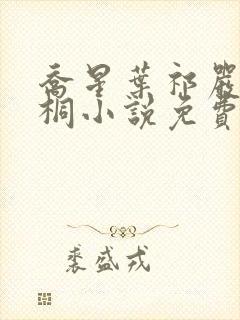 喬星葉祁嚴
桐小說免費
裘盛戎